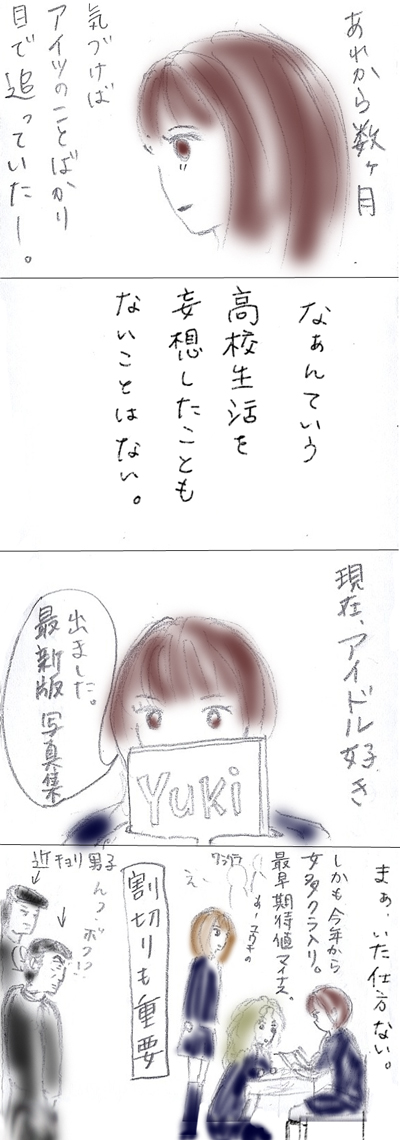 あれから数ヶ月
気づけば
アイツのことばかり
目で追っていたー。
なぁんていう
高校生活を
妄想したことも
ないことはない。
現在、アイドル好き
出ました。
最新版 写真集
Yuki
まぁ、いた仕方ない。
しかも今年から
女多クラ入り。
最早期待値マイナス。
あーユウキの
ワラワラ
え、
割切りも重要
近キョリ男子
ん?ボク!?